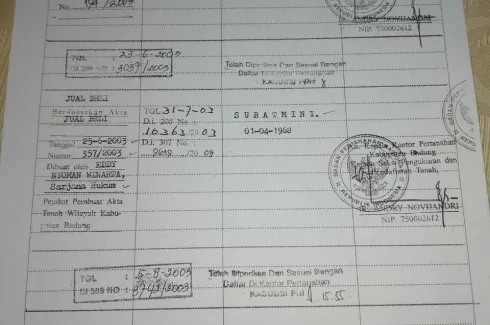 No. 184/2003
NIP. 750002612
TGL : 23-6-2003
DI 503 NO : 3037/2003
Telah Diperiksa Dan Sesuai Dengan
Daftar Di Kantor Pertanahan
KASUBSI PIH
JUAL BELI
Berdasarkan Akta
JUAL BELI
Tanggal 25-6-2003
Nomor 357/2003
Dibuat oleh EDDY
NYOMAN WINARTA,
Sarjana Hukum
Pejabat Pembuat Akta
Tanah Wilayah Kabu-
paten Badung
TGL 31-7-03
D.i. 208 No.
10.363/2003
D.i. 307 No.
SURATMINI.-
01-04-1968
Kepala Kantor Pertanahan
Kabupaten Badung
Kepala Seksi Pengukuran dan
Pendaftaran Tanah,
NIP. 750002612
TGL : 5-8-2003
DI 503 NO : 3742/2003
Telah Diperiksa Dan Sesuai Dengan
Daftar Di Kantor Pertanahan
KASUBSI PIH